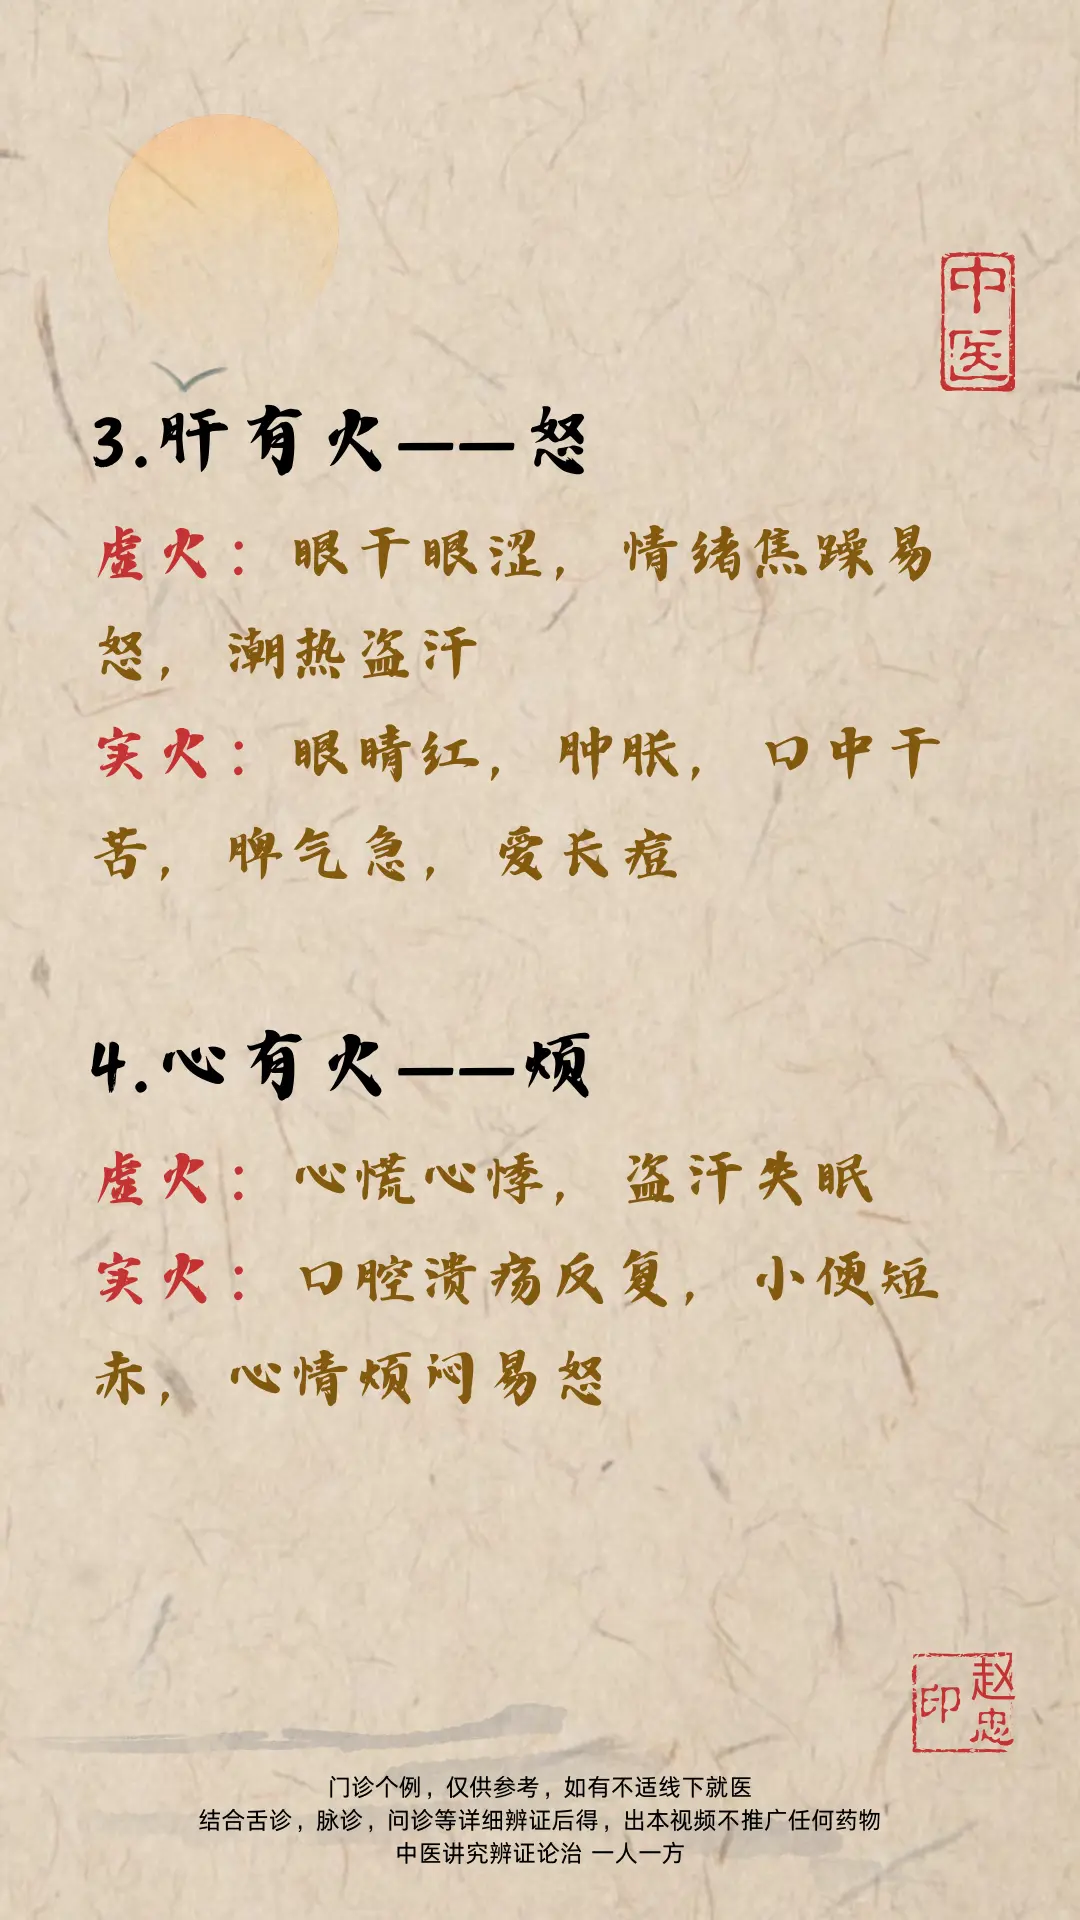 中医
3.肝有火——怒
虚火：眼干眼涩，情绪焦躁易
怒，潮热盗汗
实火：眼睛红，肿胀，口中干
苦，脾气急，爱长痘
4.心有火——烦
虚火：心慌心悸，盗汗失眠
实火：口腔溃疡反复，小便短
赤，心情烦闷易怒
赵忠印
门诊个例，仅供参考，如有不适线下就医
结合舌诊，脉诊，问诊等详细辨证后得，出本视频不推广任何药物
中医讲究辨证论治 一人一方